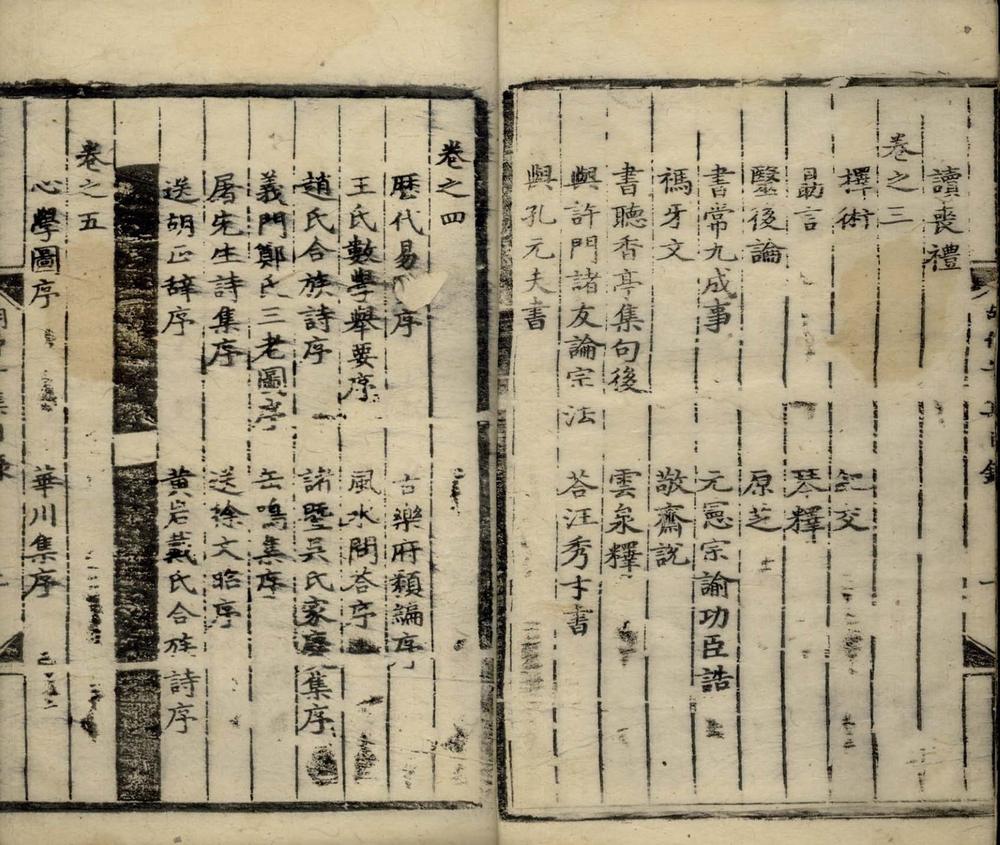 讀喪禮
卷之三
擇術
釋交
助言 琴釋
醫後論 原芝
書常九成事 元憲宗諭功臣誥
禡牙文 敬齋説
書聽香亭集句後 雲泉釋
與許門諸友論宗法 荅汪秀才書
與孔元夫書
卷之四
歷代易 序 古樂府類編序
王氏數學舉要序 風水問荅序
趙氏合族詩序 諸暨吳氏家 集序
義門鄭氏三老圖序 缶鳴集序
屠先生詩集序 送徐文昭序
送胡正辭序 黃岩戴氏合族詩序
卷之五
心學圖序 華川集序